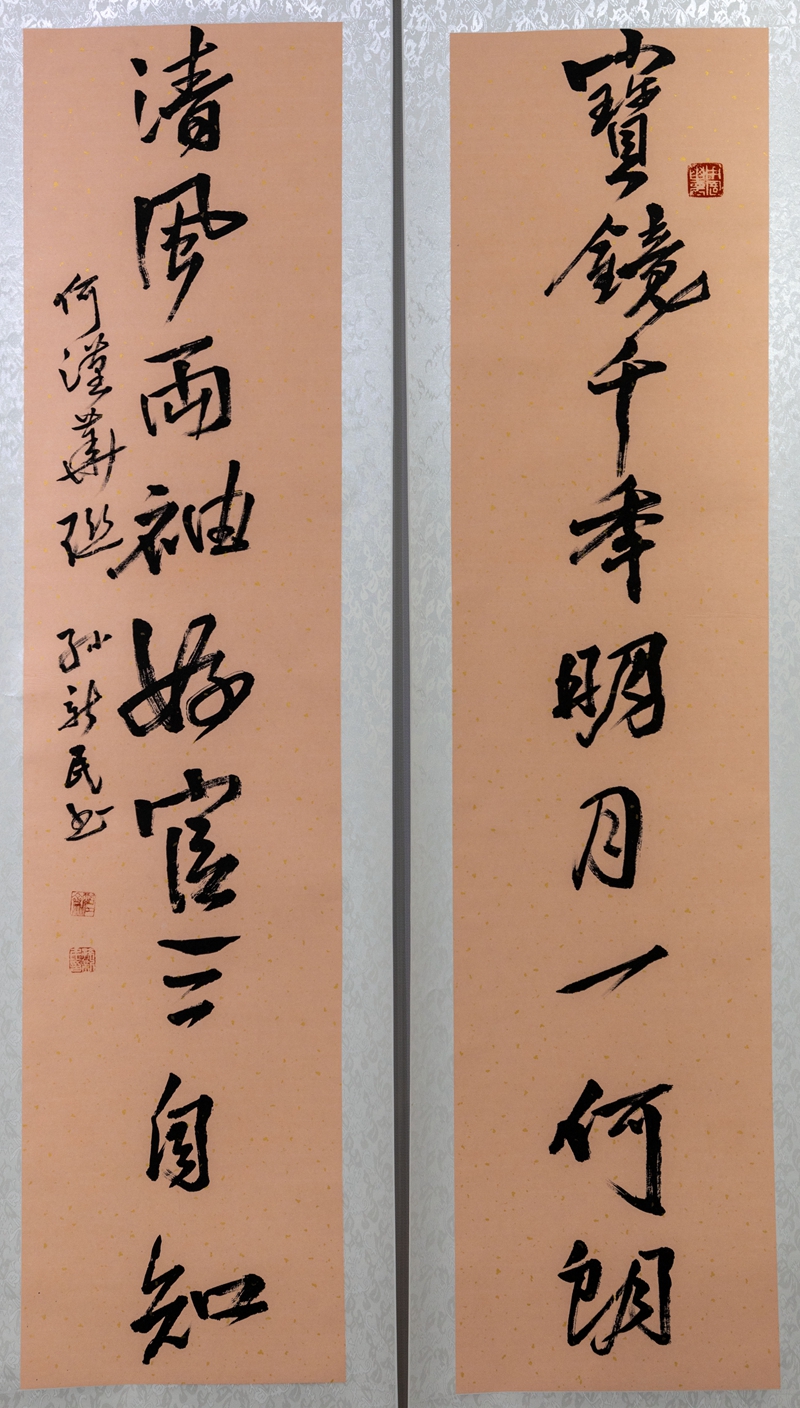 寶鏡千年明月一何朗
清風兩袖好官三自知
何漢華撰 孫新民書